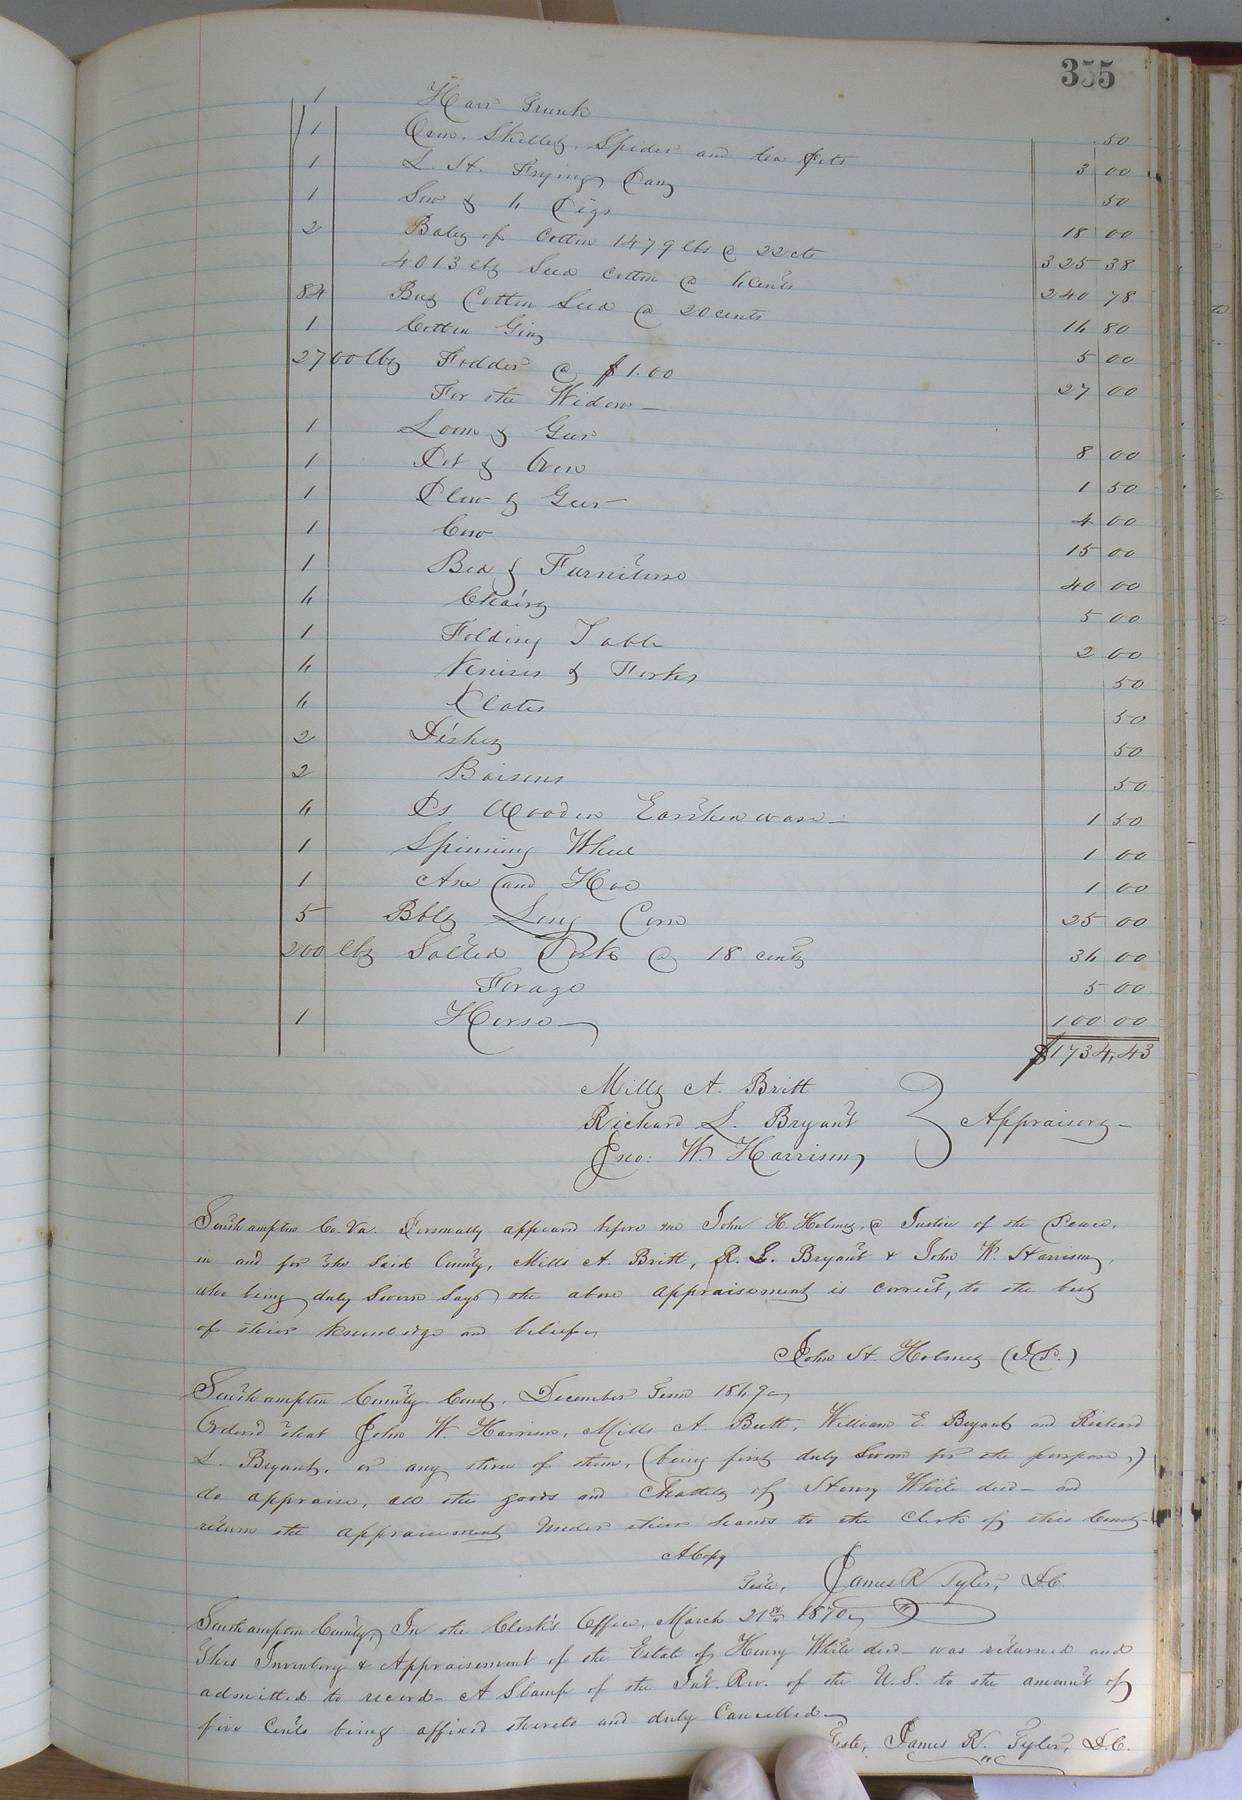 355
1 Hair Trunk .50
1 Oven, Skillet, Spider and tea Pots 3 00
1 L. H. Frying Pan 50
1 Sow & 4 Pigs 18 00
2 Bales of Cotton 1479 lbs @ 22 cts 325 38
4013 lbs Seed Cotton @ 6 Cents 240 78
84 Bus Cotton Seed @ 20 cents 16 80
1 Cotton Gin 5 00
2700 lbs Fodder @ $1.00 27 00
For the Widow —
1 Loom & Gear 8 00
1 Pot & Oven 1 50
1 Plow & Gear 4 00
1 Cow 15 00
1 Bed & Furniture 40 00
6 Chairs 5 00
1 Folding Table 2 00
6 Knives & Forks 50
6 Plates 50
2 Dishes 50
2 Basons 50
6 Ps Wooden Earthenware — 1 50
1 Spinning Wheel 1 00
1 Axe and Hoe 1 00
5 Bbls Long Corn 25 00
200 lbs Salted Pork @ 18 cents 36 00
Forage 5 00
1 Horse 100 00
$1734.43
Mills A. Britt
Richard L. Bryant } Appraisers —
Jno: W. Harrison
Southampton Co. Va. Personally appeard before me John H. Holmes, a Justice of the Peace,
in and for the said County, Mills A. Britt, R. L. Bryant & John W. Harrison,
who being duly Sworn Says the above appraisement is correct, to the best
of their knowledge and belief
John H. Holmes (J.P.)
Southampton County Court, December Term 1869
Ordered that John W. Harrison, Mills A. Britt, William E Bryant and Richard
L. Bryant, or any three of them, (being first duly Sworn for the purpose,)
do appraise, all the goods and Chattels of Henry White decd— and
return the appraisement under their hands to the Clerk of this County—
A Copy
Teste, James R Tyler, D.C.
Southampton County, In the Clerk's Office, March 21st 1870
This Inventory & Appraisement of the Estate of Henry White decd— was returned and
admitted to record— A Stamp of the Int. Rev. of the U.S. to the amount of
five Cents being affixed thereto and duly Cancelled—
Teste, James R. Tyler, D.C.